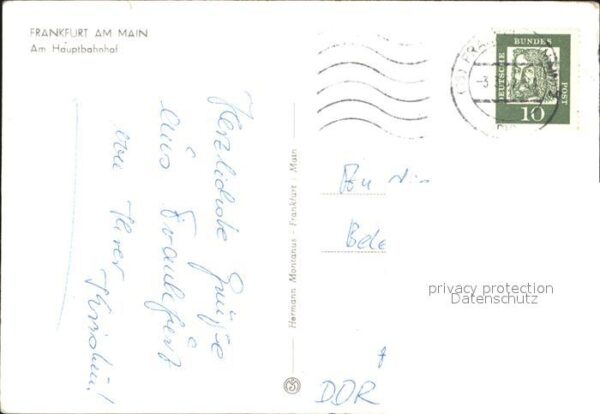 FRANKFURT AM MAIN
Am Hauptbahnhof
Herzlichste Grüße
aus Frankfurt
von Ihrer
Hermann Monicanus - Frankfurt / Main
DEUTSCHE BUNDES POST
10
An
privacy protection
Datenschutz
DDR